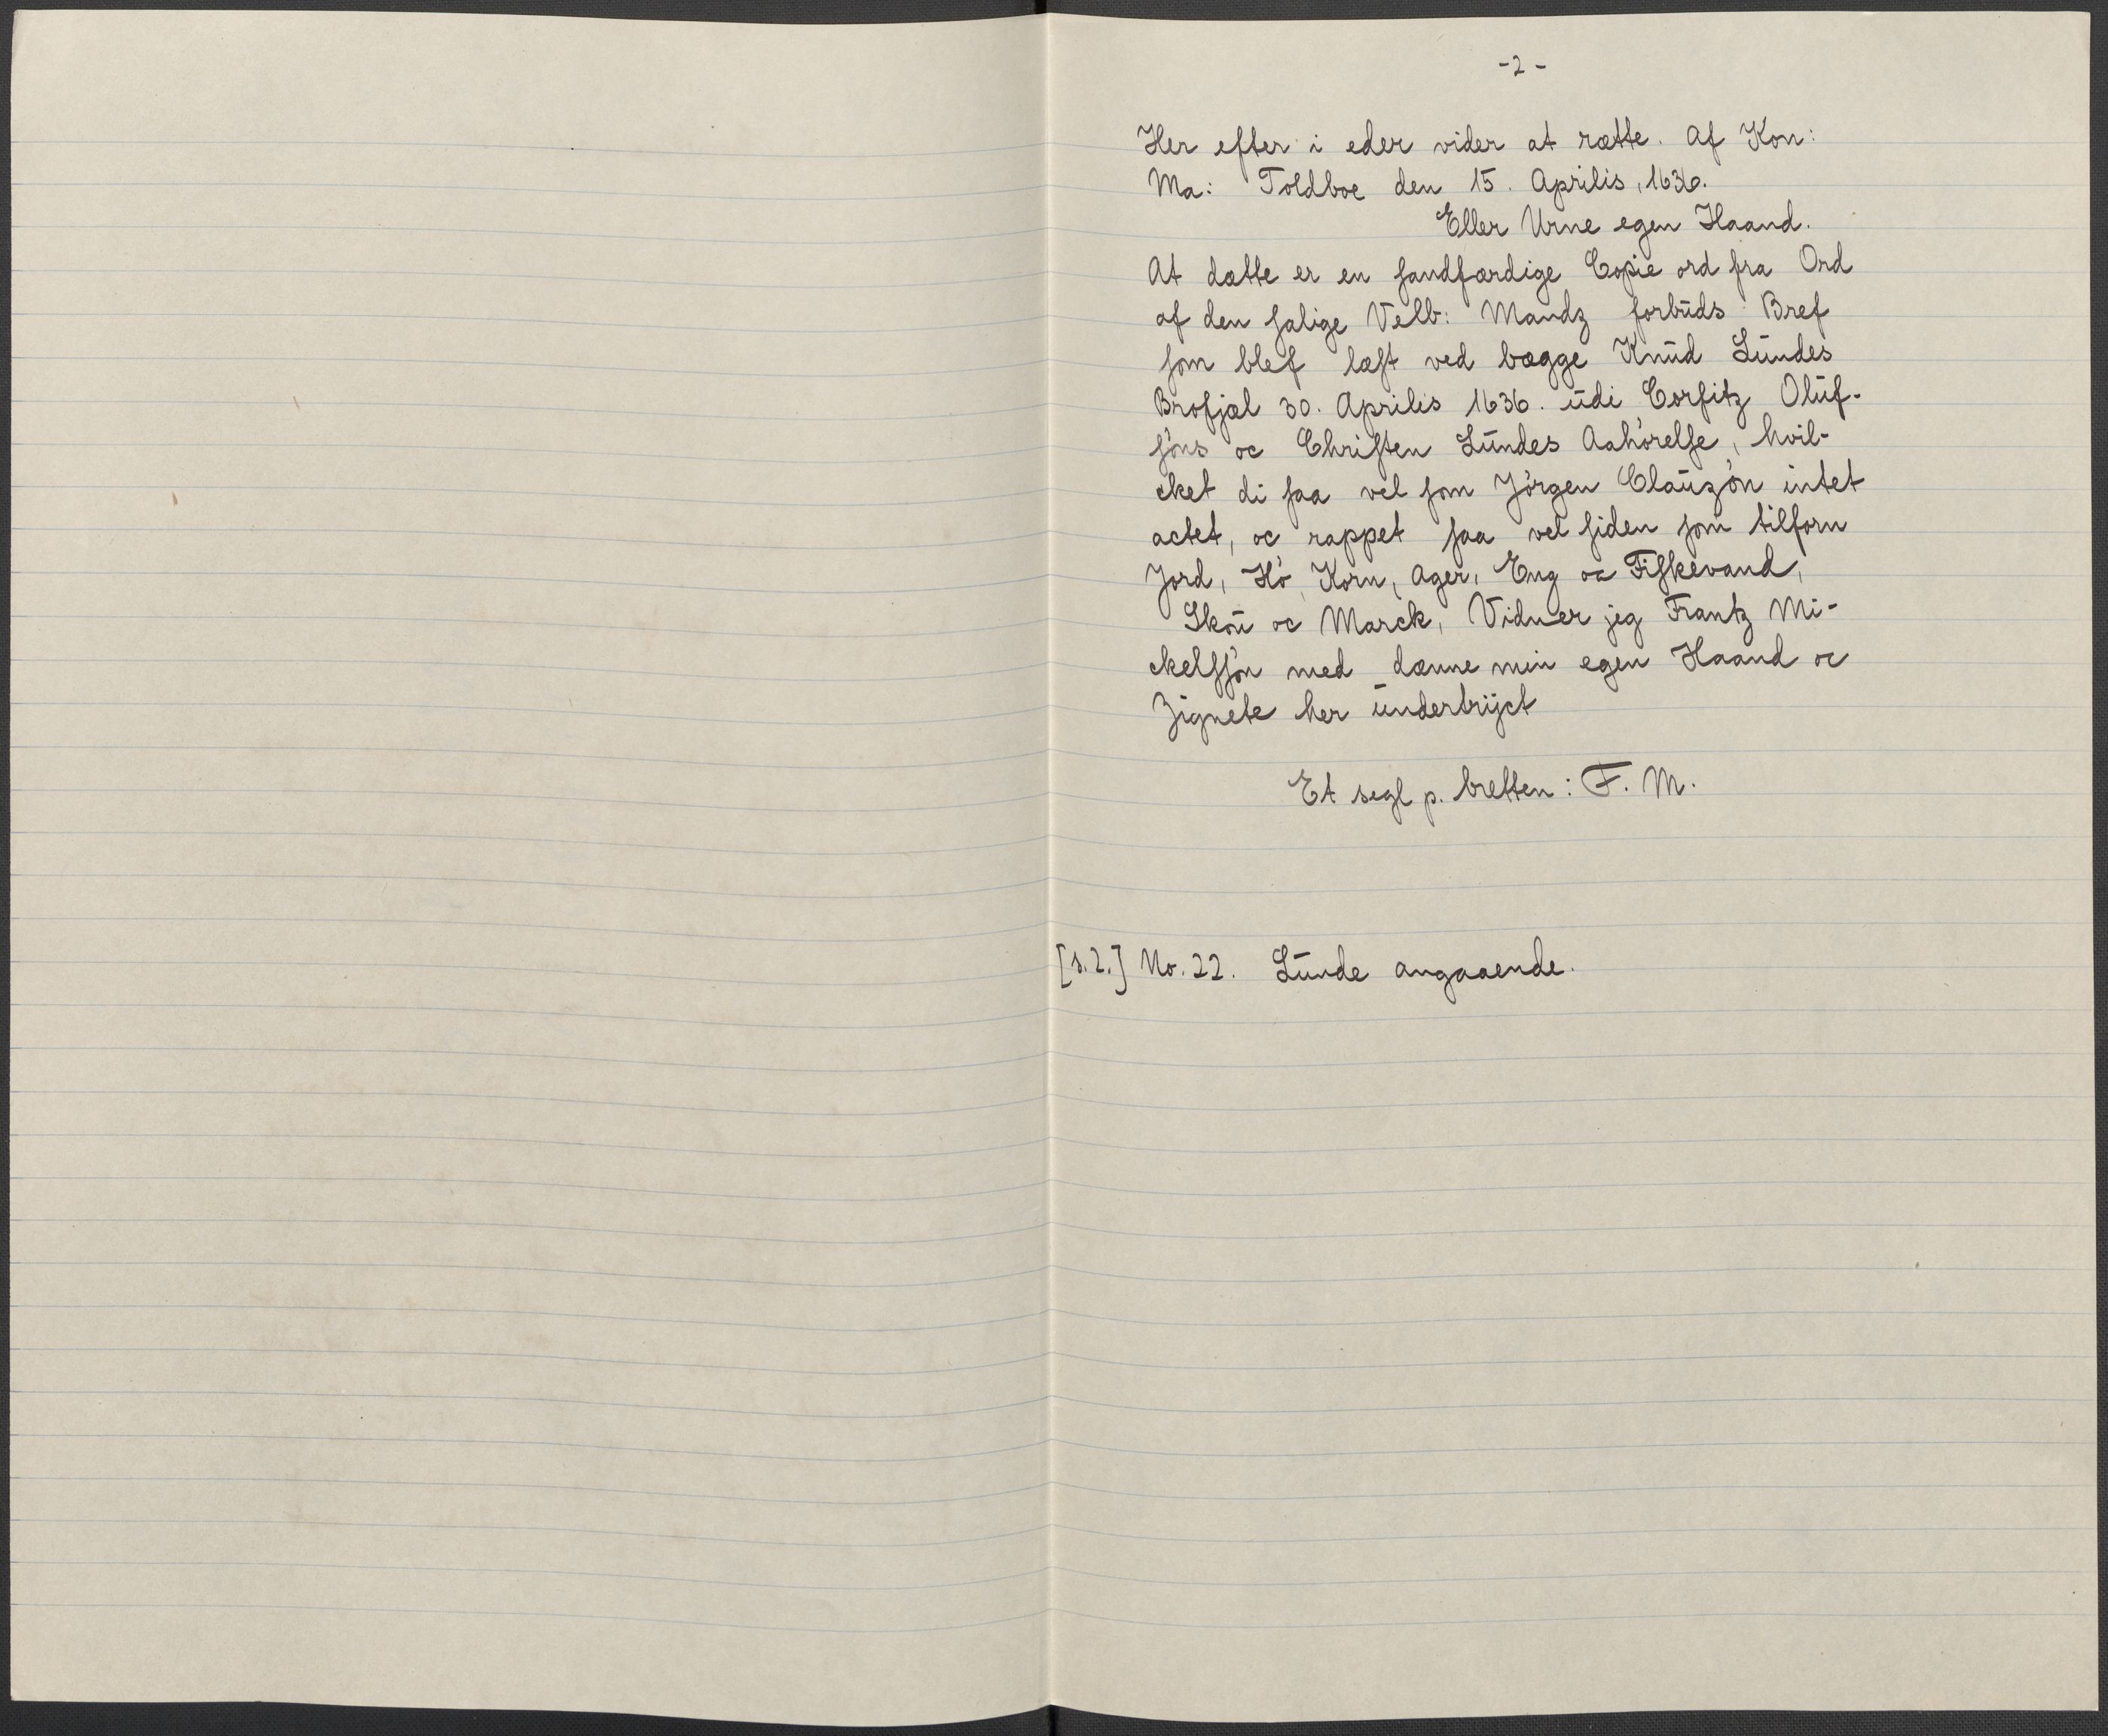 -2-
Her efter i eder vider at rætte. Af Kon:
Ma: Toldboe den 15. Aprilis, 1636.
Eller Urne egen Haand.
At dætte er en ſandfærdige Copie ord fra Ord
af den ſalige Velb: Mandz forbūds Bref
ſom blef læſt ved bægge Knūd Lūndes
Brofjæl 30. Aprilis 1636. ūdi Corfitz Olūf-
ſöns oc Chriſten Lūndes Aahörelſe, hvil-
cket di ſaa vel ſom Jörgen Claūzön intet
actet, oc rappet ſaa vel ſiden ſom tilforn
Jord, Hö, Korn, Ager, Eng oc Fiſkevand,
Skoū oc Marck, Vidner jeg Frantz Mi-
ckelſſön med dænne min egen Haand oc
Zignete her ūndertrÿct
Et segl p. bretten: F. M.
[s.2.] No. 22. Lūnde angaaende.